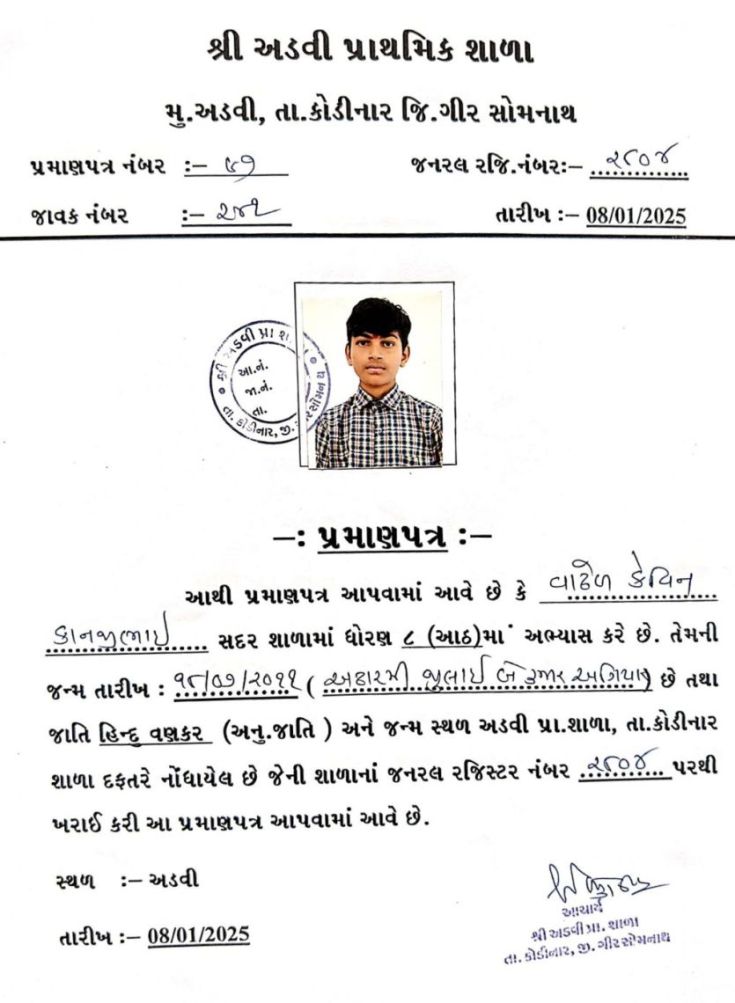 શ્રી અડવી પ્રાથમિક શાળા
મુ.અડવી, તા.કોડીનાર જિ.ગીર સોમનાથ
પ્રમાણપત્ર નંબર :– ૬૭ જનરલ રજિ.નંબર:– ૨૮૦૪
જાવક નંબર :– ૨૪૨ તારીખ :– 08/01/2025
શ્રી અડવી પ્રા શાળા
આ.નં.
જા.નં.
તા.
તા. કોડીનાર, જી. ગીરસોમનાથ
–: પ્રમાણપત્ર :–
આથી પ્રમાણપત્ર આપવામાં આવે છે કે વાઢેળ કેવિન
કાનજીભાઇ સદર શાળામાં ધોરણ ૮ (આઠ)માં અભ્યાસ કરે છે. તેમની
જન્મ તારીખ : ૧૮/૦૭/૨૦૧૧ ( અઢારમી જુલાઈ બે હજાર અગિયાર ) છે તથા
જાતિ હિન્દુ વણકર (અનુ.જાતિ ) અને જન્મ સ્થળ અડવી પ્રા.શાળા, તા.કોડીનાર
શાળા દફતરે નોંધાયેલ છે જેની શાળાનાં જનરલ રજિસ્ટર નંબર ૨૮૦૪ પરથી
ખરાઈ કરી આ પ્રમાણપત્ર આપવામાં આવે છે.
સ્થળ :– અડવી
તારીખ :– 08/01/2025
આચાર્ય
શ્રી અડવી પ્રા. શાળા
તા. કોડીનાર, જી. ગીર સોમનાથ